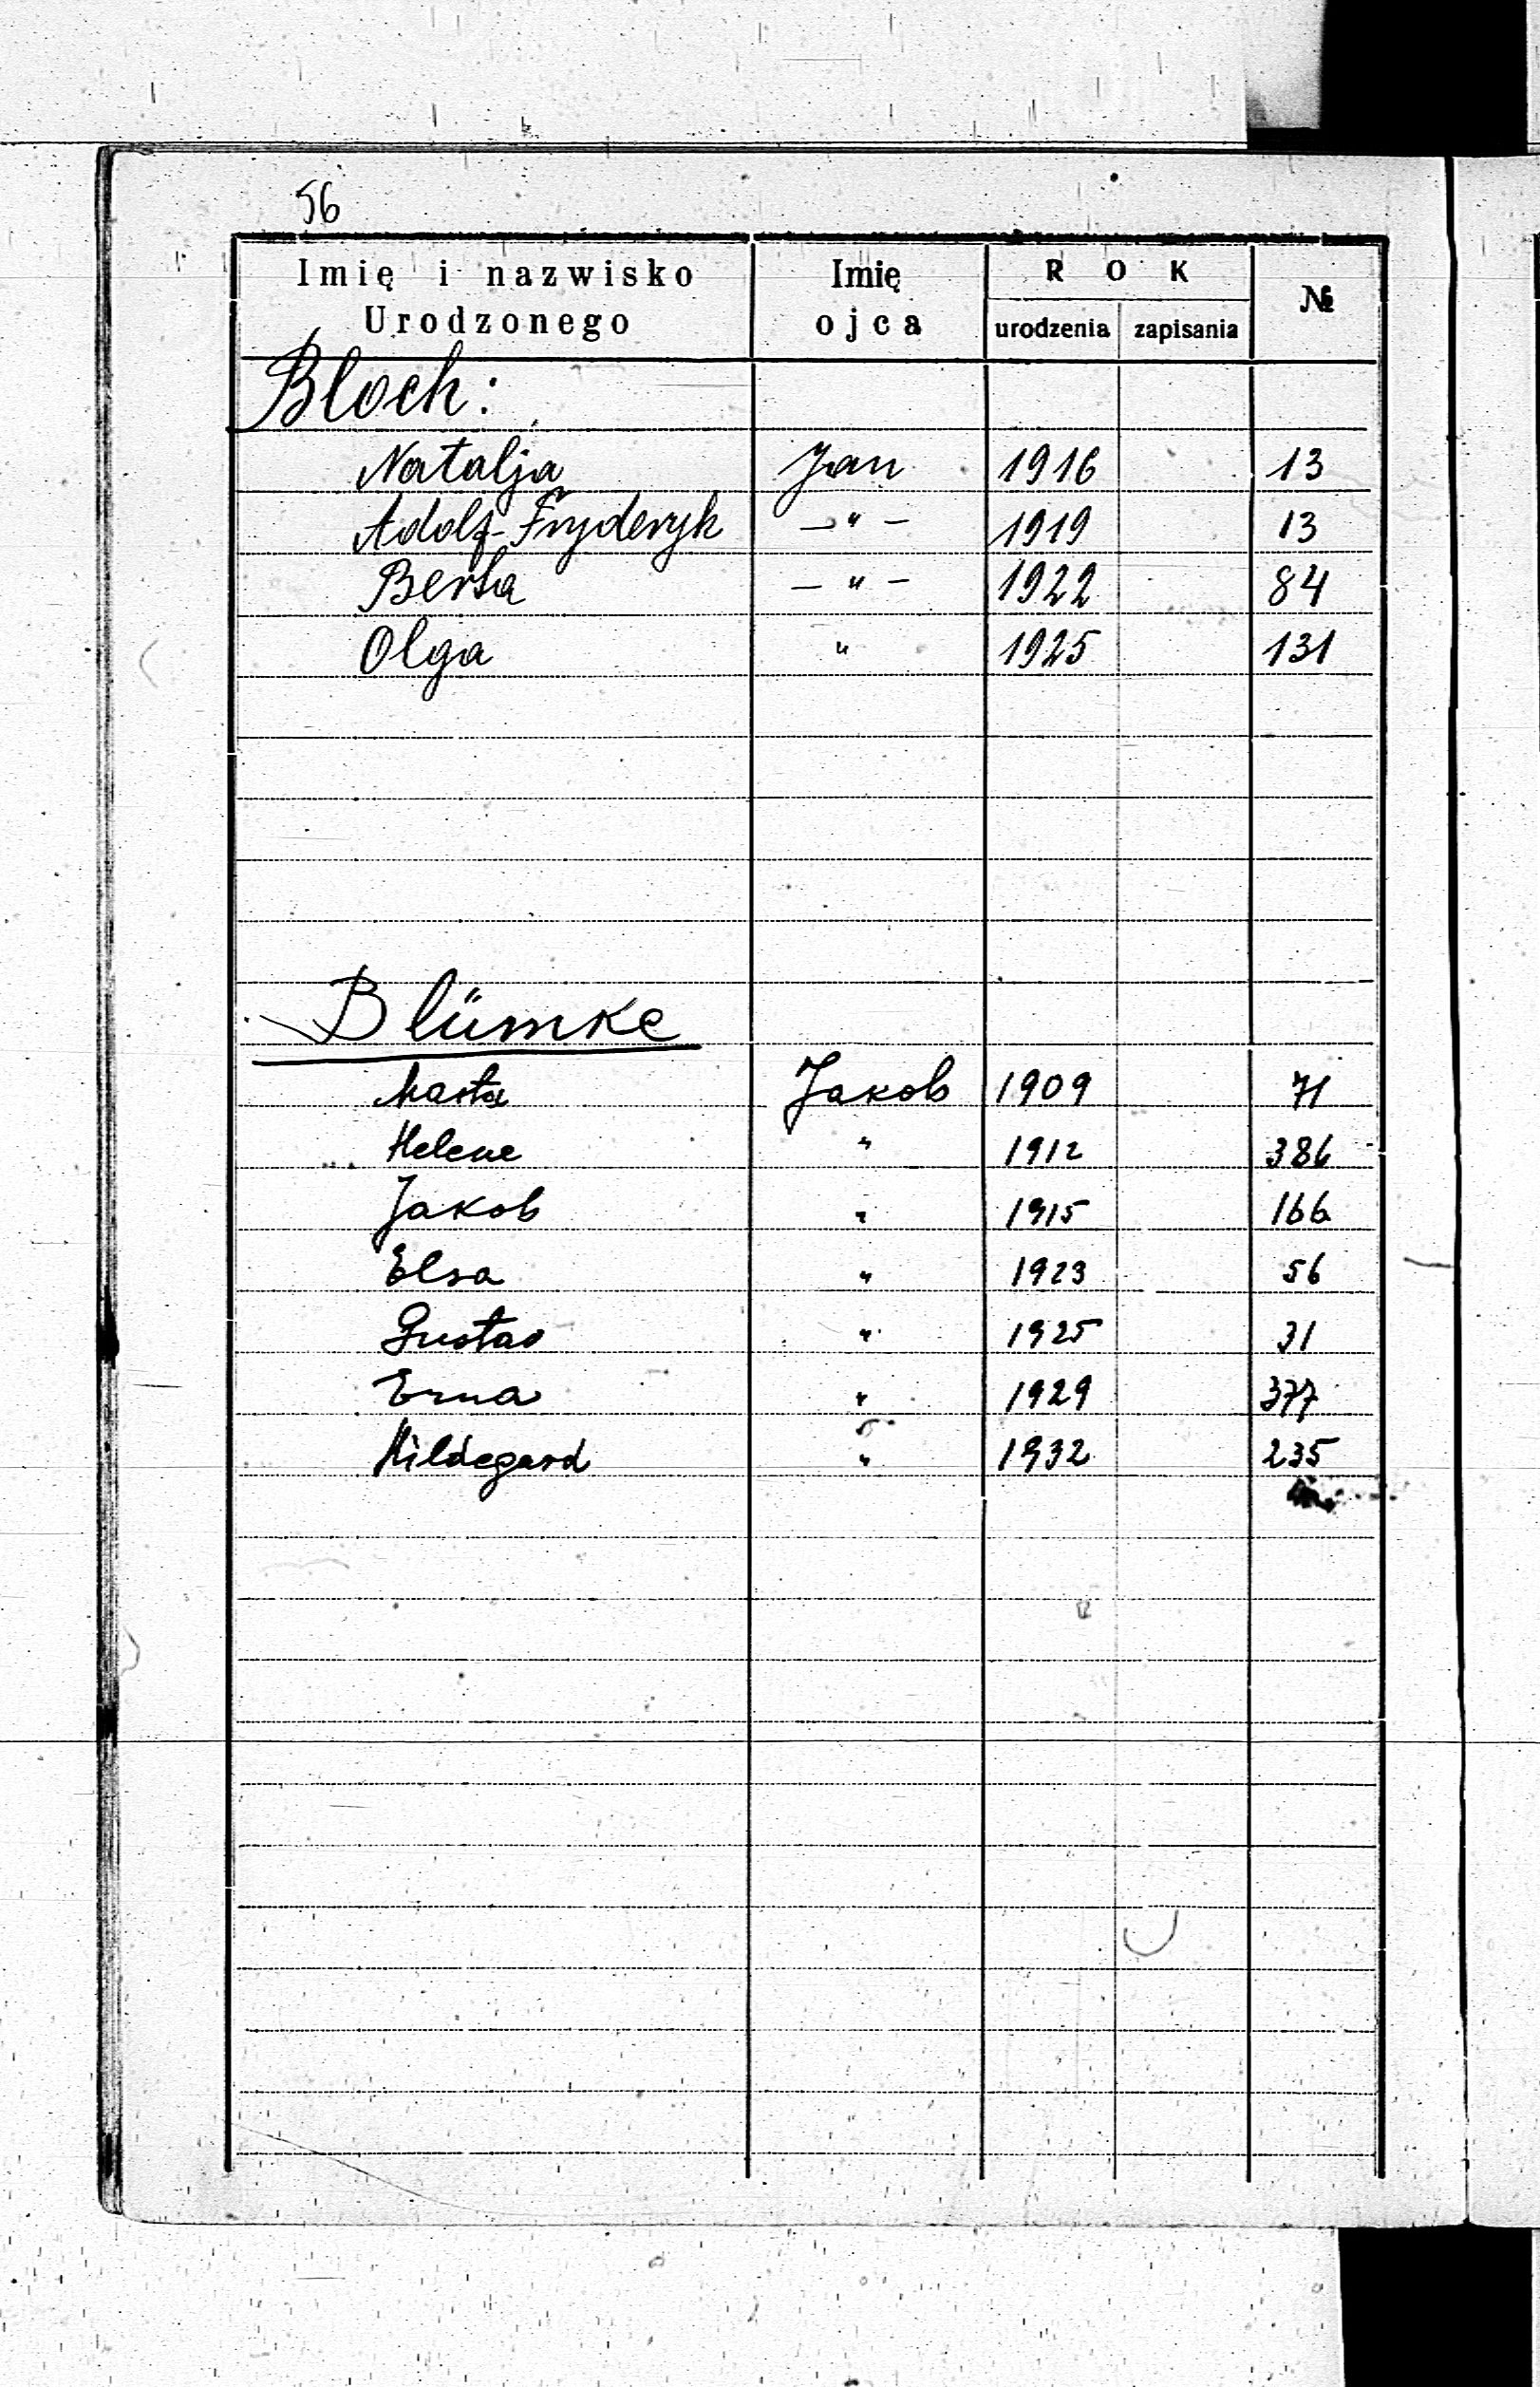 56
Imię i nazwisko Urodzonego Imię ojca ROK urodzenia zapisania №
Bloch:
Natalja Jan 1916 13
Adolf-Fryderyk —"— 1919 13
Berta —"— 1922 84
Olga " 1925 131
Blümke
Marta Jakob 1909 71
Helene " 1912 386
Jakob " 1915 166
Elsa " 1923 56
Gustav " 1925 31
Erna " 1929 377
Hildegard " 1932 235